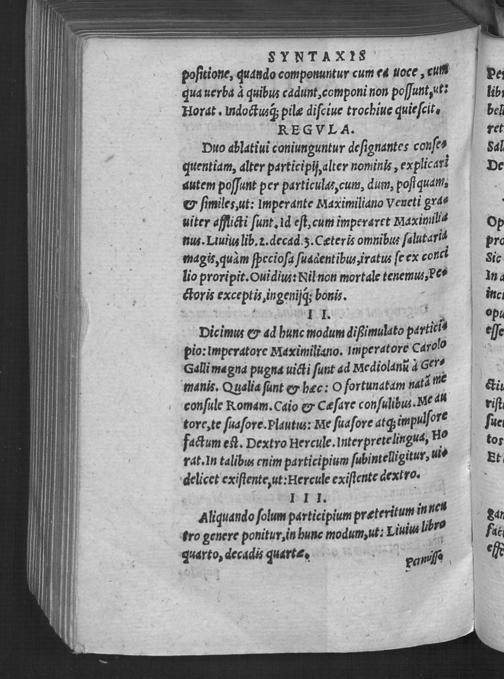 SYNTAXIS
positione, quando componuntur cum ea uoce, cum
qua uerba à quibus cadunt, componi non possunt, ut:
Horat. Indoctusq́; pilæ disciue trochiue quiescit.
REGVLA.
Duo ablatiui coniunguntur designantes conse-
quentiam, alter participij, alter nominis, explicari
autem possunt per particulas, cum, dum, postquam,
& similes, ut: Imperante Maximiliano Veneti gra-
uiter afflicti sunt. Id est, cum imperaret Maximilia
nus. Liuius lib. 2. decad. 3. Cæteris omnibus salutaria
magis, quàm speciosa suadentibus, iratus se ex conci
lio proripit. Ouidius: Nil non mortale tenemus, Pe-
ctoris exceptis, ingenijq́; bonis.
II.
Dicimus & ad hunc modum dißimulato partici-
pio: Imperatore Maximiliano. Imperatore Carolo
Galli magna pugna uicti sunt ad Mediolanũ à Ger-
manis. Qualia sunt & hæc: O fortunatam natã me
consule Romam. Caio & Cæsare consulibus. Me au
tore, te suasore. Plautus: Me suasore atq́; impulsore
factum est. Dextro Hercule. Interprete lingua, Ho
rat. In talibus enim participium subintelligitur, ui-
delicet existente, ut: Hercule existente dextro.
III.
Aliquando solum participium præteritum in neu
tro genere ponitur, in hunc modum, ut: Liuius libro
quarto, decadis quartæ.
Permisso